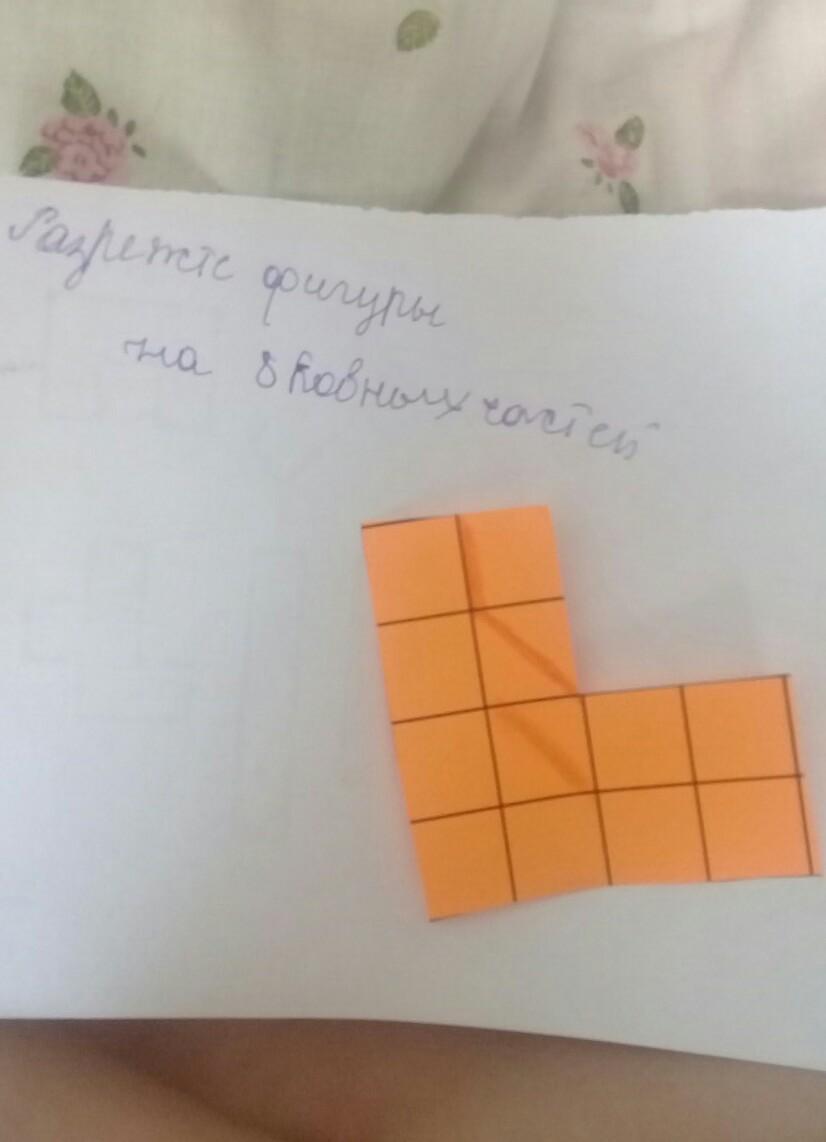 Разрежте фигуры
на 8 Ровных частей